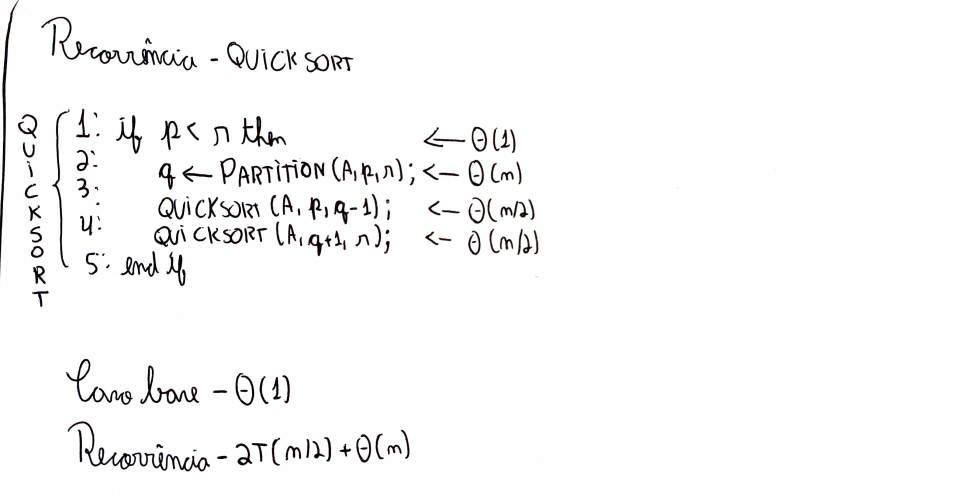 Recorrência - QUICKSORT
QUICKSORT
1: if p < r then ← Θ(1)
2: q ← PARTITION (A, p, r); ← Θ(n)
3: QUICKSORT (A, p, q-1); ← Θ(n/2)
4: QUICKSORT (A, q+1, r); ← Θ(n/2)
5: end if
Caso base - Θ(1)
Recorrência - 2T(n/2) + Θ(n)